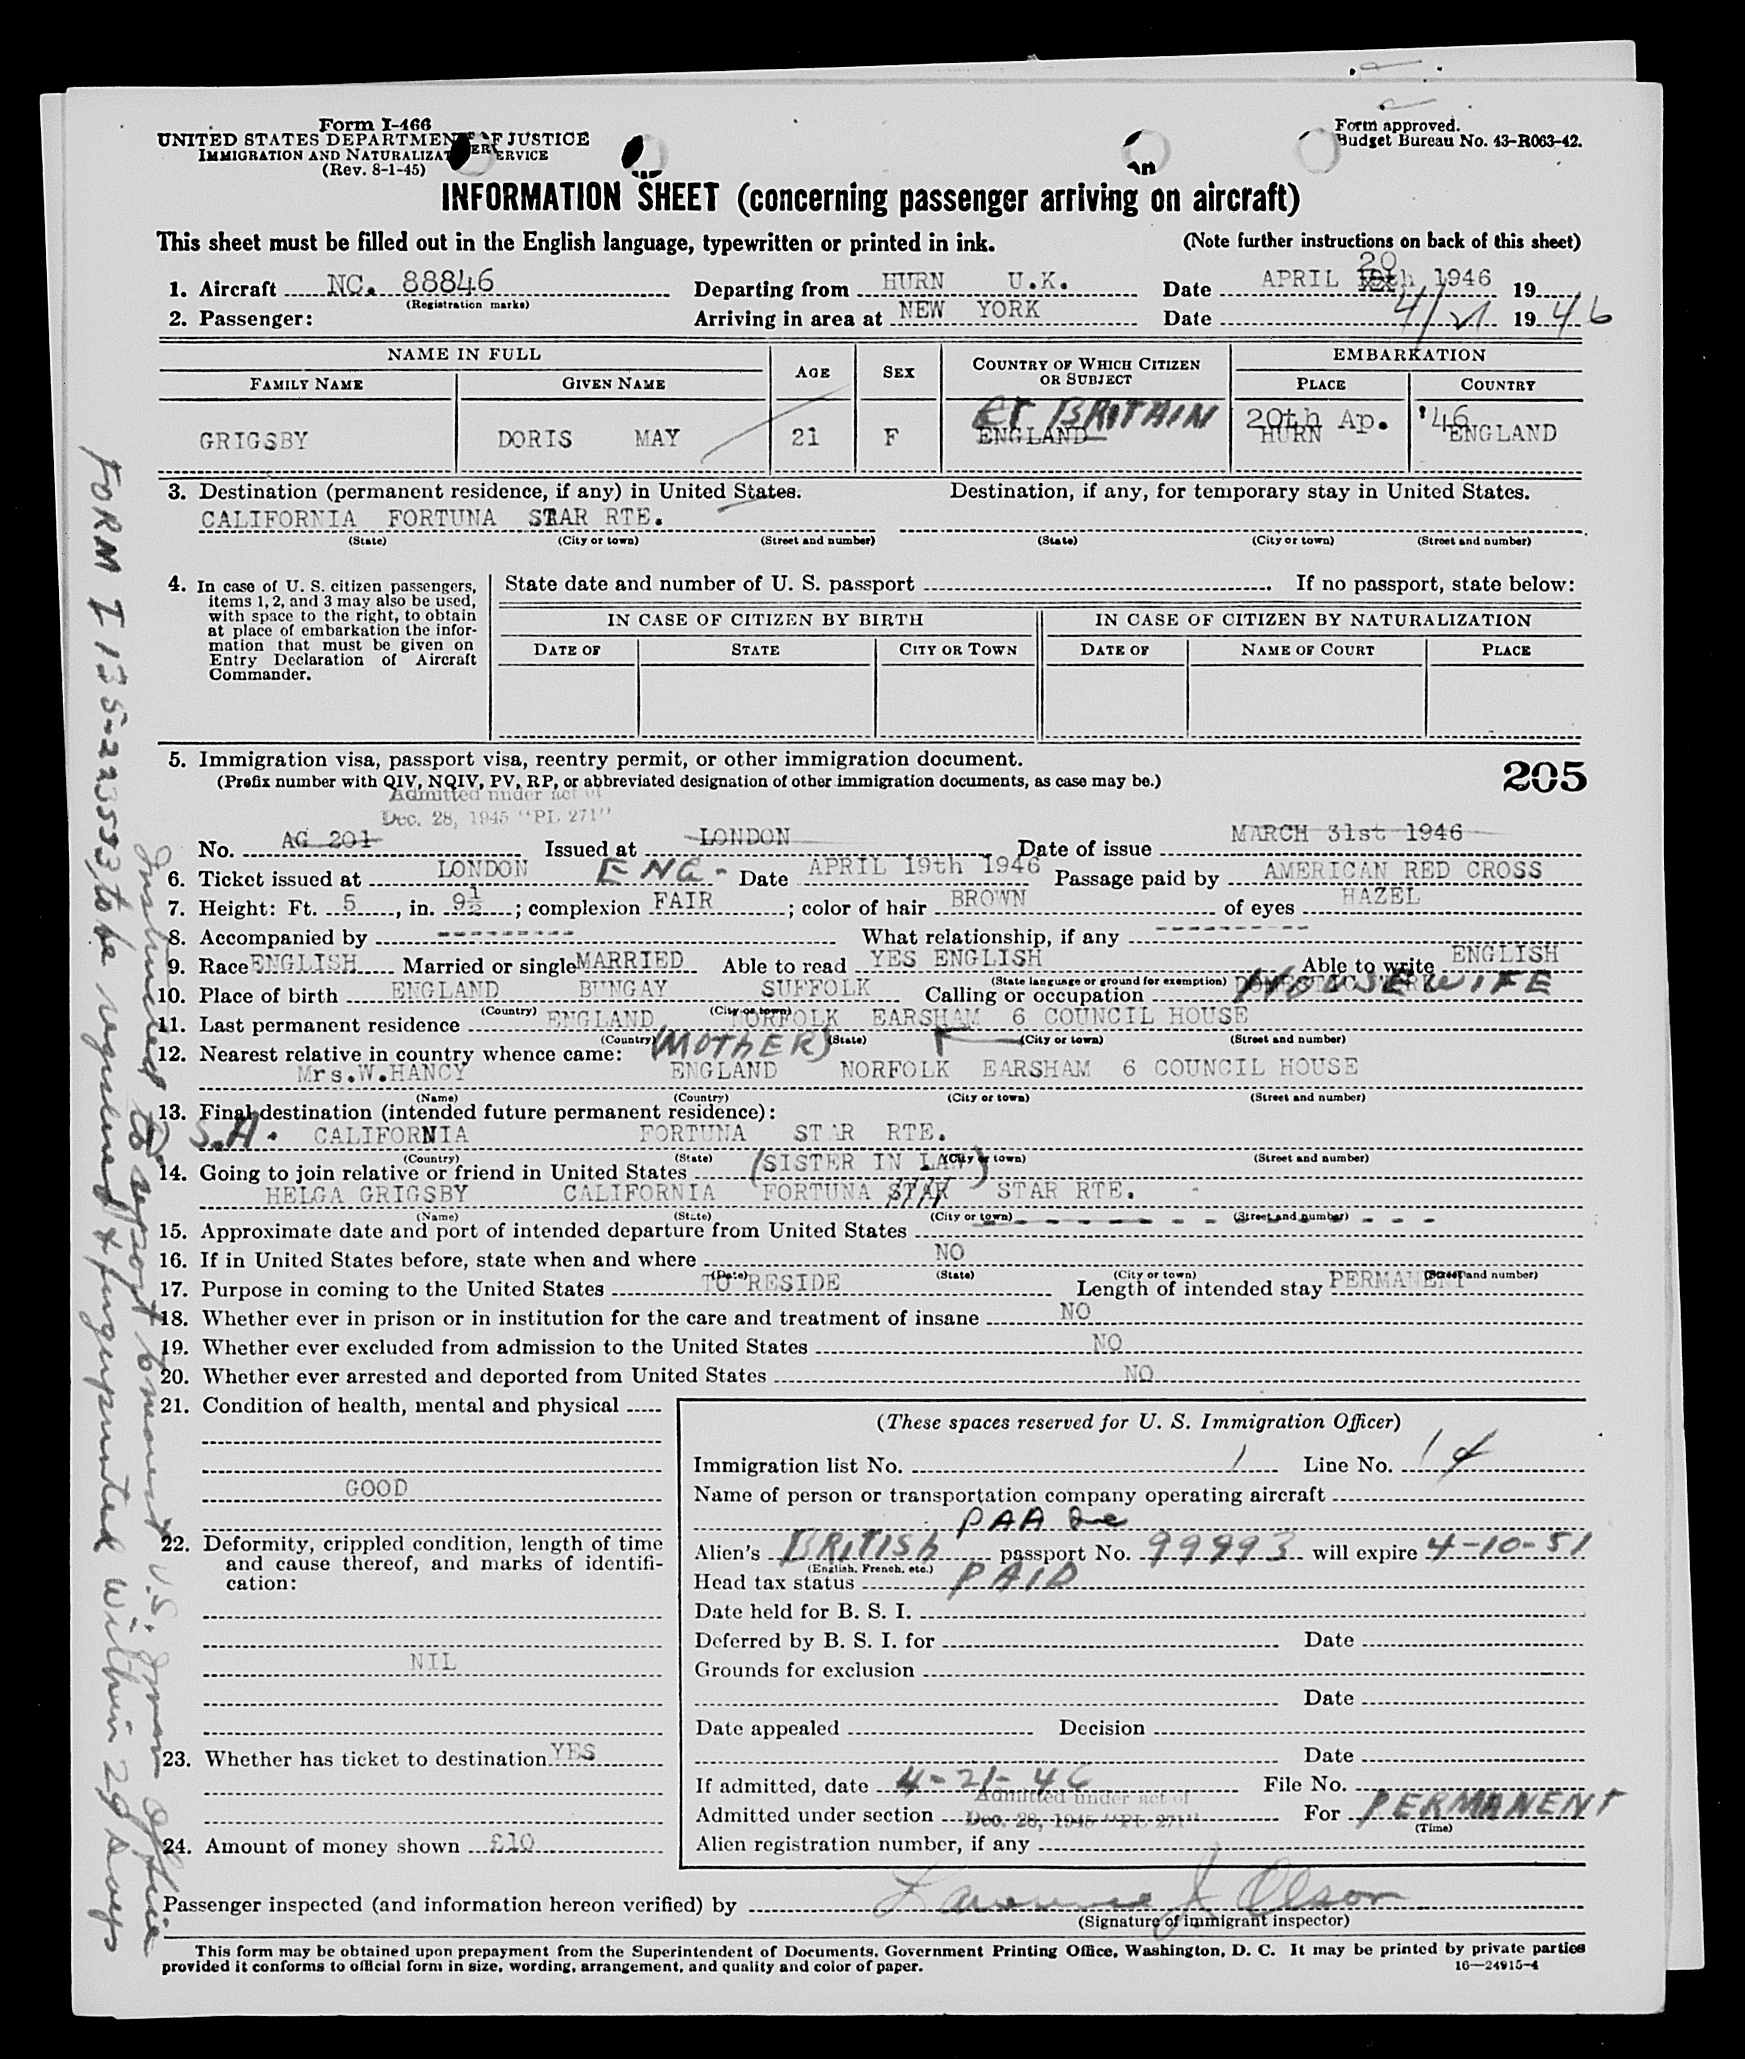 Form I-466
UNITED STATES DEPARTMENT OF JUSTICE
IMMIGRATION AND NATURALIZAT SERVICE
(Rev. 8-1-45)
Form approved.
Budget Bureau No. 43-R063-42.
INFORMATION SHEET (concerning passenger arriving on aircraft)
This sheet must be filled out in the English language, typewritten or printed in ink. (Note further instructions on back of this sheet)
1. Aircraft NC. 88846 Departing from HURN U.K. Date APRIL 20 1946 19
(Registration marks)
2. Passenger: Arriving in area at NEW YORK Date 4/21 1946
NAME IN FULL AGE SEX COUNTRY OF WHICH CITIZEN OR SUBJECT EMBARKATION
FAMILY NAME GIVEN NAME PLACE COUNTRY
GT BRITAIN 20th Ap. '46
GRIGSBY DORIS MAY 21 F ENGLAND HURN ENGLAND
3. Destination (permanent residence, if any) in United States. Destination, if any, for temporary stay in United States.
CALIFORNIA FORTUNA STAR RTE.
(State) (City or town) (Street and number) (State) (City or town) (Street and number)
4. In case of U. S. citizen passengers,
items 1, 2, and 3 may also be used,
with space to the right, to obtain
at place of embarkation the infor-
mation that must be given on
Entry Declaration of Aircraft
Commander.
State date and number of U. S. passport If no passport, state below:
IN CASE OF CITIZEN BY BIRTH IN CASE OF CITIZEN BY NATURALIZATION
DATE OF STATE CITY OR TOWN DATE OF NAME OF COURT PLACE
5. Immigration visa, passport visa, reentry permit, or other immigration document.
(Prefix number with QIV, NQIV, PV, RP, or abbreviated designation of other immigration documents, as case may be.)
205
Admitted under act of
Dec. 28, 1945 "PL 271"
No. AG 201 Issued at LONDON Date of issue MARCH 31st 1946
6. Ticket issued at LONDON ENG. Date APRIL 19th 1946 Passage paid by AMERICAN RED CROSS
7. Height: Ft. 5, in. 9½; complexion FAIR; color of hair BROWN of eyes HAZEL
8. Accompanied by --------- What relationship, if any ----------
9. Race ENGLISH Married or single MARRIED Able to read YES ENGLISH Able to write ENGLISH
(State language or ground for exemption)
10. Place of birth ENGLAND BUNGAY SUFFOLK Calling or occupation HOUSEWIFE
(Country) (City or town)
11. Last permanent residence ENGLAND NORFOLK EARSHAM 6 COUNCIL HOUSE
(Country) (State) (City or town) (Street and number)
12. Nearest relative in country whence came: (MOTHER)
Mrs.W.HANCY ENGLAND NORFOLK EARSHAM 6 COUNCIL HOUSE
(Name) (Country) (City or town) (Street and number)
13. Final destination (intended future permanent residence):
CALIFORNIA FORTUNA STAR RTE.
(Country) (State) (City or town) (Street and number)
14. Going to join relative or friend in United States (SISTER IN LAW)
HELGA GRIGSBY CALIFORNIA FORTUNA STAR STAR RTE.
(Name) (State) (City or town) (Street and number)
15. Approximate date and port of intended departure from United States
16. If in United States before, state when and where NO
(Date) (State) (City or town) (Street and number)
17. Purpose in coming to the United States TO RESIDE Length of intended stay PERMANENT
18. Whether ever in prison or in institution for the care and treatment of insane NO
19. Whether ever excluded from admission to the United States NO
20. Whether ever arrested and deported from United States NO
21. Condition of health, mental and physical
GOOD
22. Deformity, crippled condition, length of time
and cause thereof, and marks of identifi-
cation:
NIL
23. Whether has ticket to destination YES
24. Amount of money shown £10
(These spaces reserved for U. S. Immigration Officer)
Immigration list No. 1 Line No. 14
Name of person or transportation company operating aircraft
PAA Inc
Alien's BRITISH passport No. 99993 will expire 4-10-51
(English, French, etc.)
Head tax status PAID
Date held for B. S. I.
Deferred by B. S. I. for Date
Grounds for exclusion
Date
Date appealed Decision
Date
If admitted, date 4-21-46 File No.
Admitted under act of
Admitted under section Dec. 28, 1945 "PL 271" For PERMANENT
(Time)
Alien registration number, if any
Passenger inspected (and information hereon verified) by Lawrence J Olson
(Signature of immigrant inspector)
This form may be obtained upon prepayment from the Superintendent of Documents, Government Printing Office, Washington, D. C. It may be printed by private parties
provided it conforms to official form in size, wording, arrangement, and quality and color of paper. 16—24915-4
Instructed to report to nearest U.S. Immn Office
FORM I 135-223553, to be registered & fingerprinted within 29 days